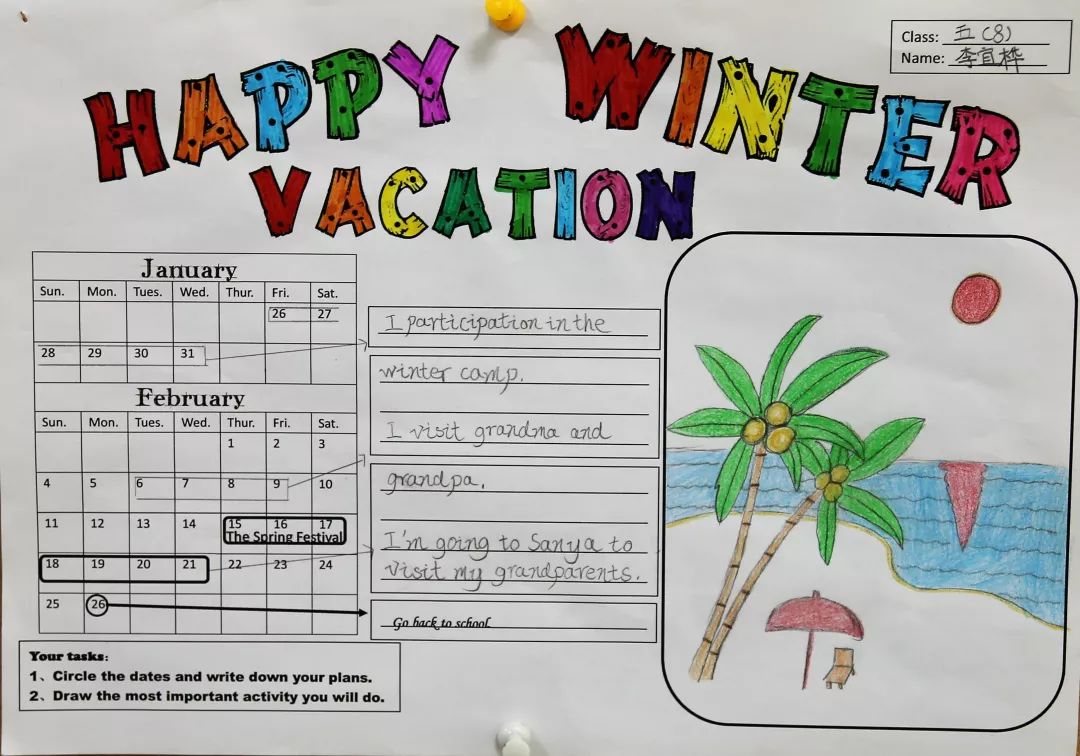 Class: 五(8)
Name: 李宜桦
HAPPY WINTER
VACATION
January
Sun. Mon. Tues. Wed. Thur. Fri. Sat.
26 27
28 29 30 31
February
Sun. Mon. Tues. Wed. Thur. Fri. Sat.
1 2 3
4 5 6 7 8 9 10
11 12 13 14 15 16 17
The Spring Festival
18 19 20 21 22 23 24
25 26
I participation in the
winter camp.
I visit grandma and
grandpa.
I'm going to Sanya to
visit my grandparents.
Go back to school
Your tasks:
1、Circle the dates and write down your plans.
2、Draw the most important activity you will do.